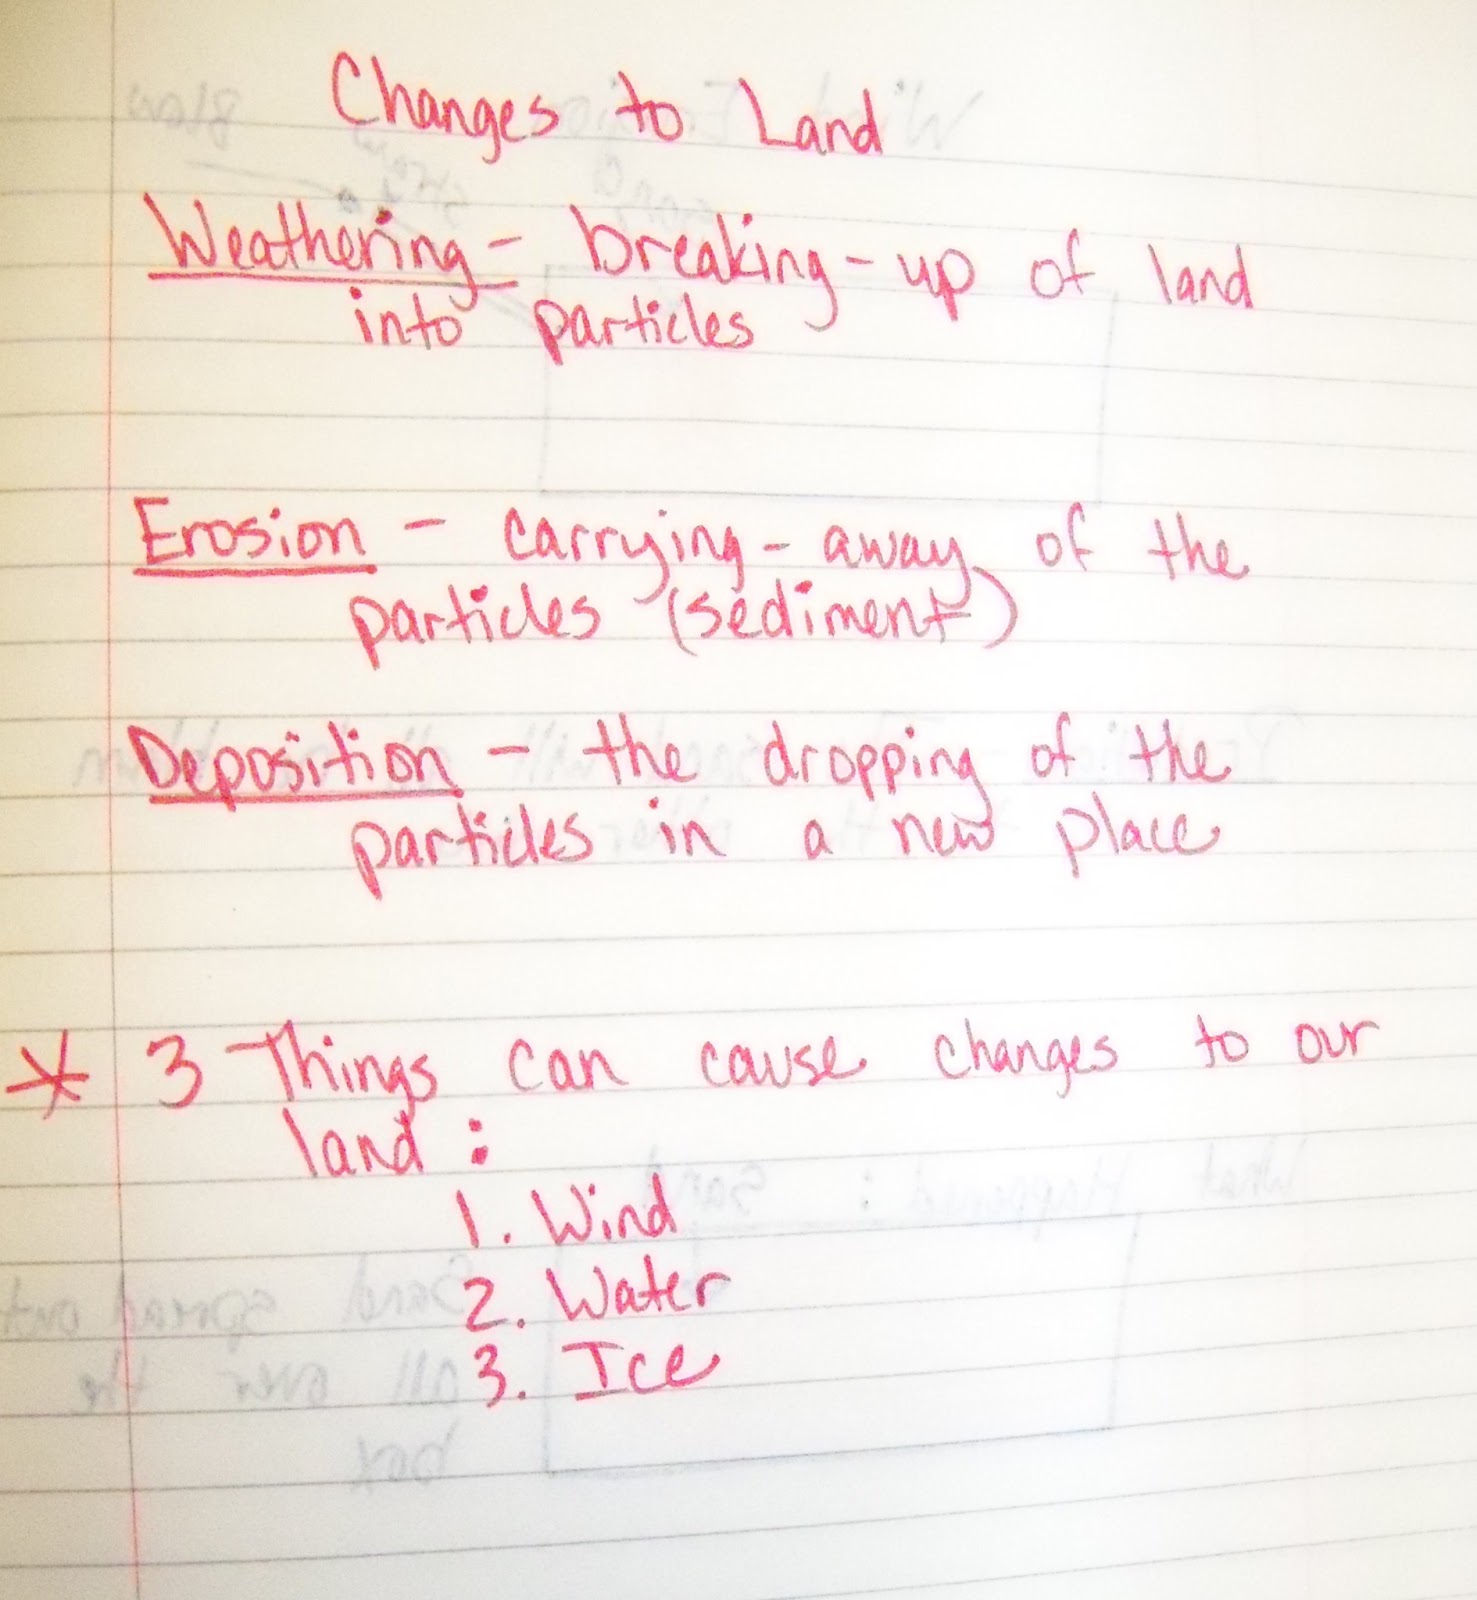 Changes to Land
Weathering - breaking-up of land
into particles
Erosion - carrying-away of the
particles (sediment)
Deposition - the dropping of the
particles in a new place
* 3 Things can cause changes to our
land:
1. Wind
2. Water
3. Ice